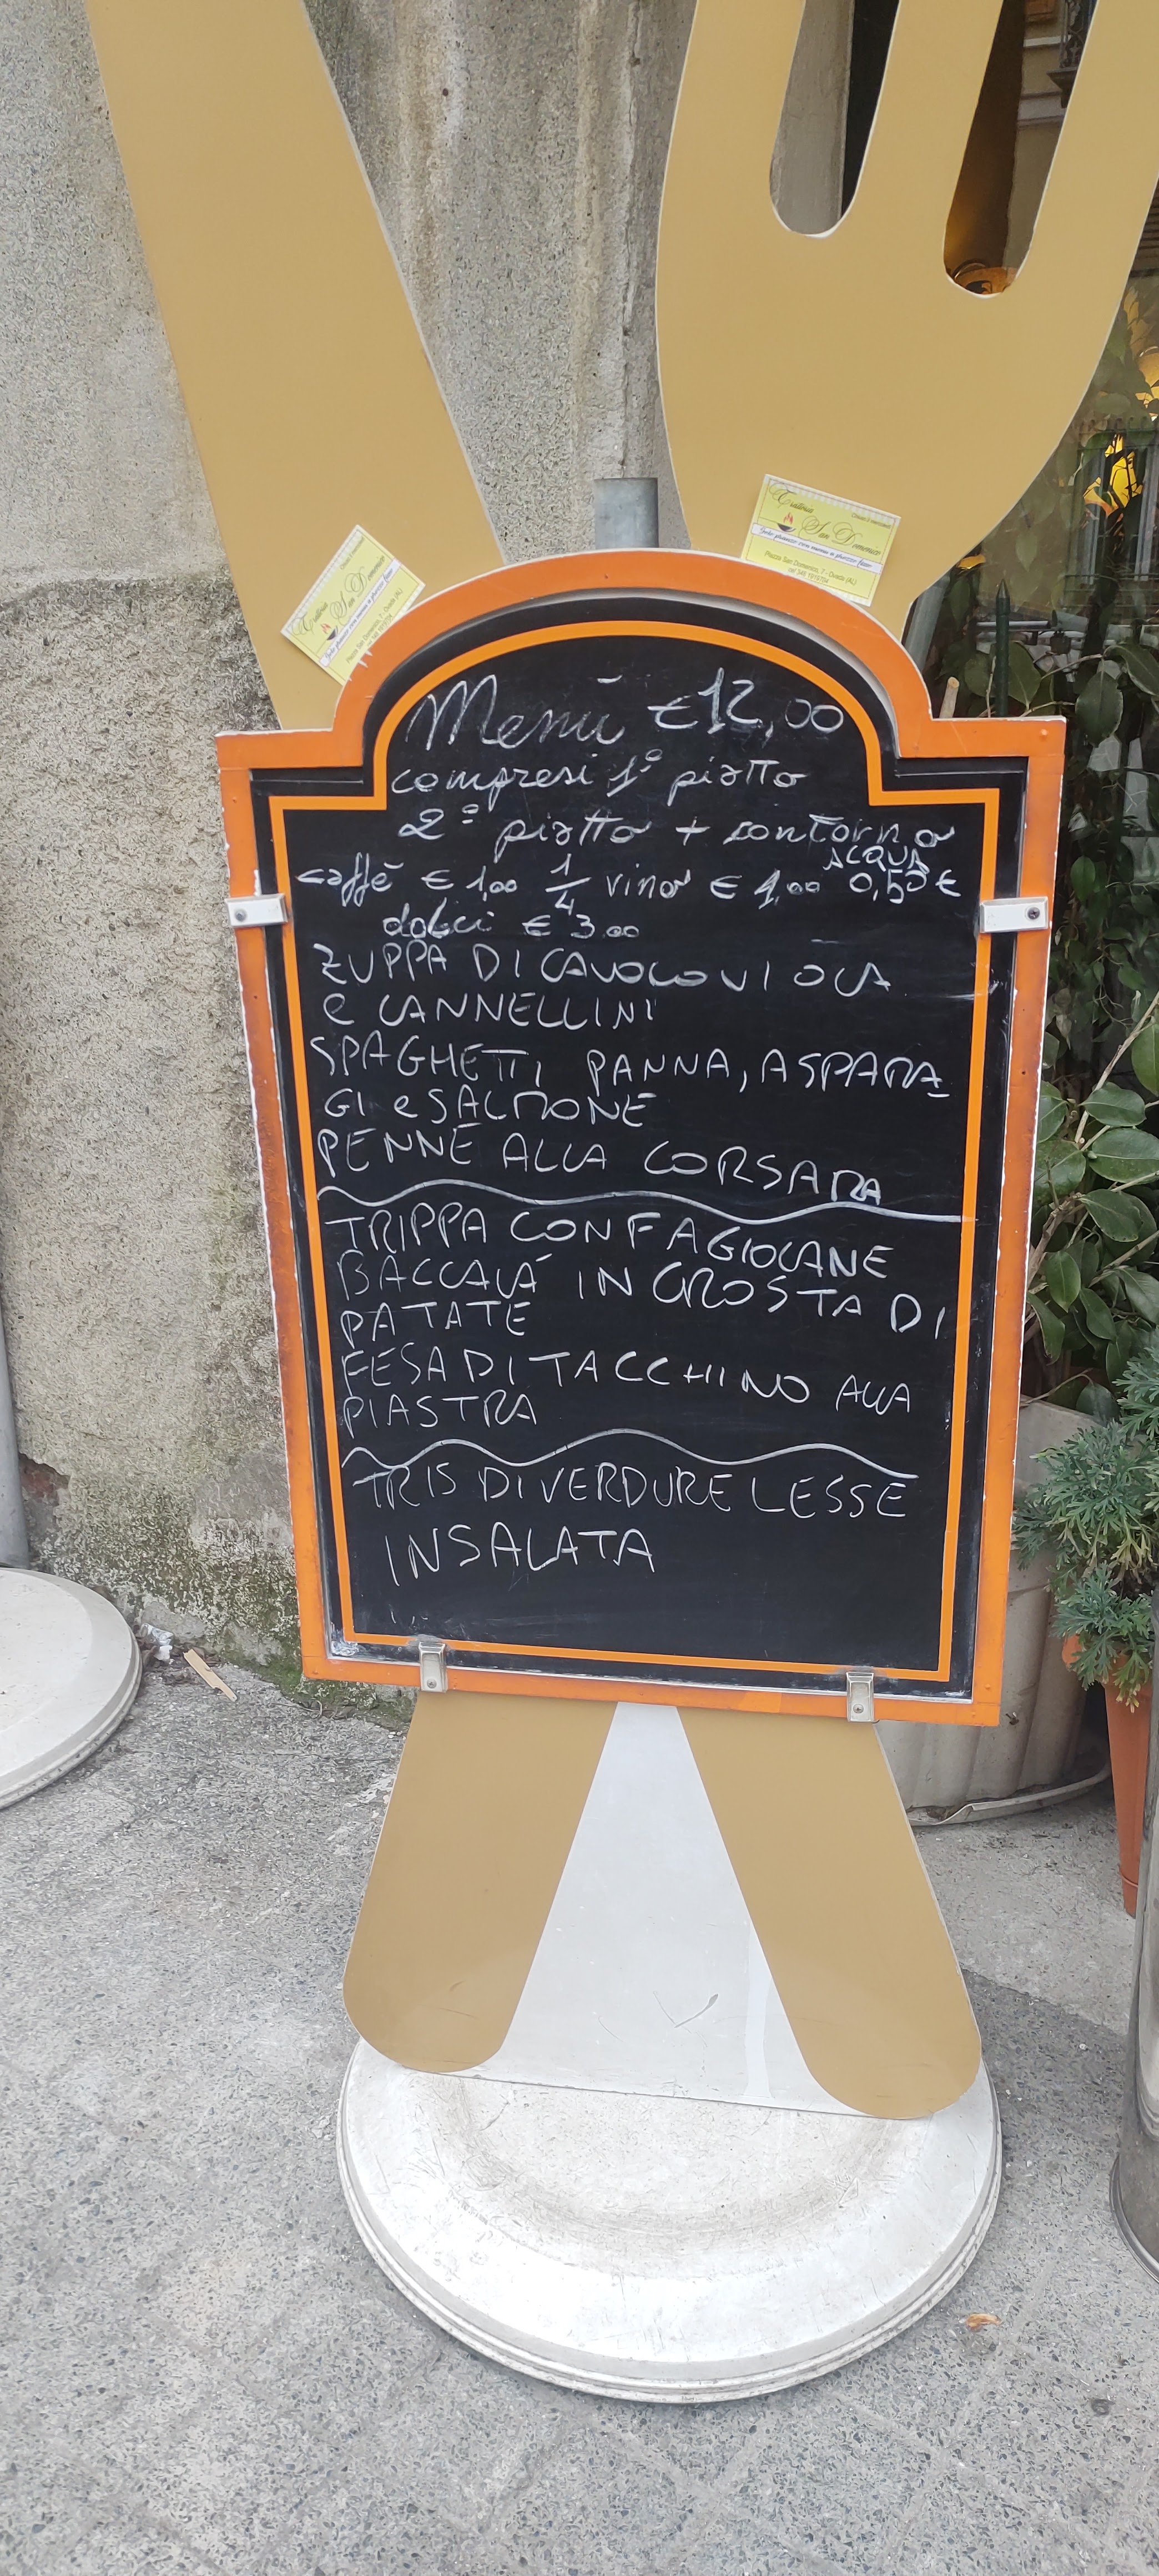 Trattoria
San Domenico
Piazza San Domenico, 7 - Ovada (AL)
Trattoria
San Domenico
Piazza San Domenico, 7 - Ovada (AL)
Menù €12,00
compresi 1° piatto
2° piatto + contorno
ACQUA
caffè €1,00 1/4 vino €1,00 0,50€
dolci €3,00
ZUPPA DI CAVOLO VIOLA
e CANNELLINI
SPAGHETTI PANNA, ASPARA
GI e SALMONE
PENNE ALLA CORSARA
TRIPPA CON FAGIOLANE
BACCALÀ IN CROSTA DI
PATATE
FESA DI TACCHINO ALLA
PIASTRA
TRIS DI VERDURE LESSE
INSALATA